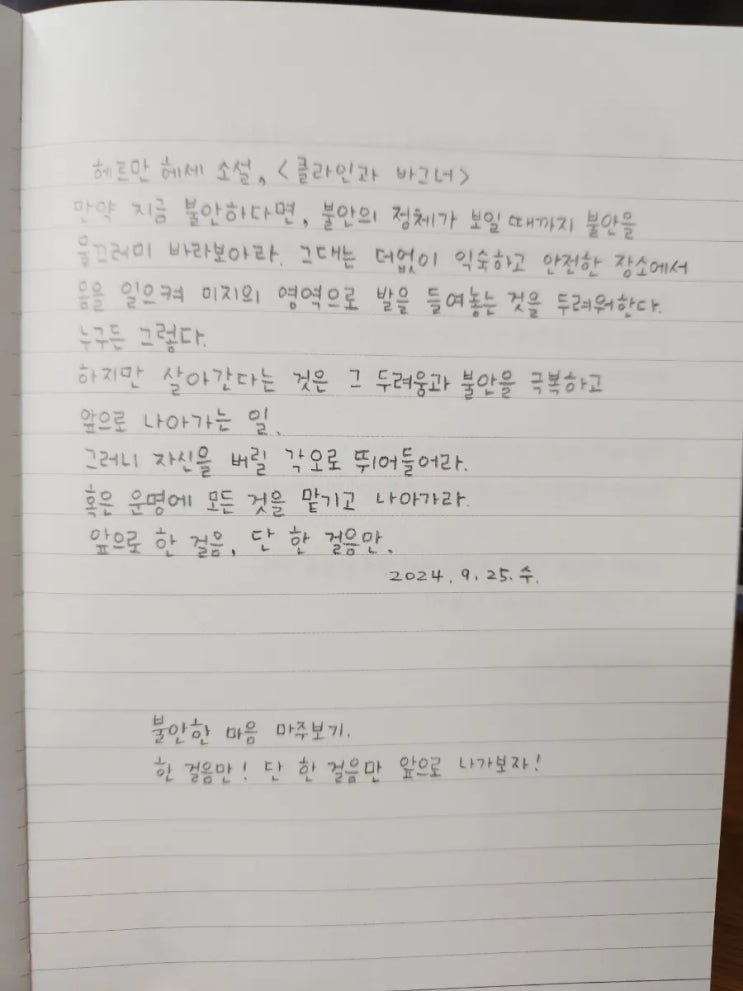 헤르만 헤세 소설, <클라인과 바그너>
만약 지금 불안하다면, 불안의 정체가 보일 때까지 불안을
물끄러미 바라보아라. 그대는 더없이 익숙하고 안전한 장소에서
몸을 일으켜 미지의 영역으로 발을 들여놓는 것을 두려워한다.
누구든 그렇다.
하지만 살아간다는 것은 그 두려움과 불안을 극복하고
앞으로 나아가는 일.
그러니 자신을 버릴 각오로 뛰어들어라.
혹은 운명에 모든 것을 맡기고 나아가라.
앞으로 한 걸음, 단 한 걸음만.
2024. 9. 25. 수.
불안한 마음 마주보기.
한 걸음만! 단 한 걸음만 앞으로 나가보자!